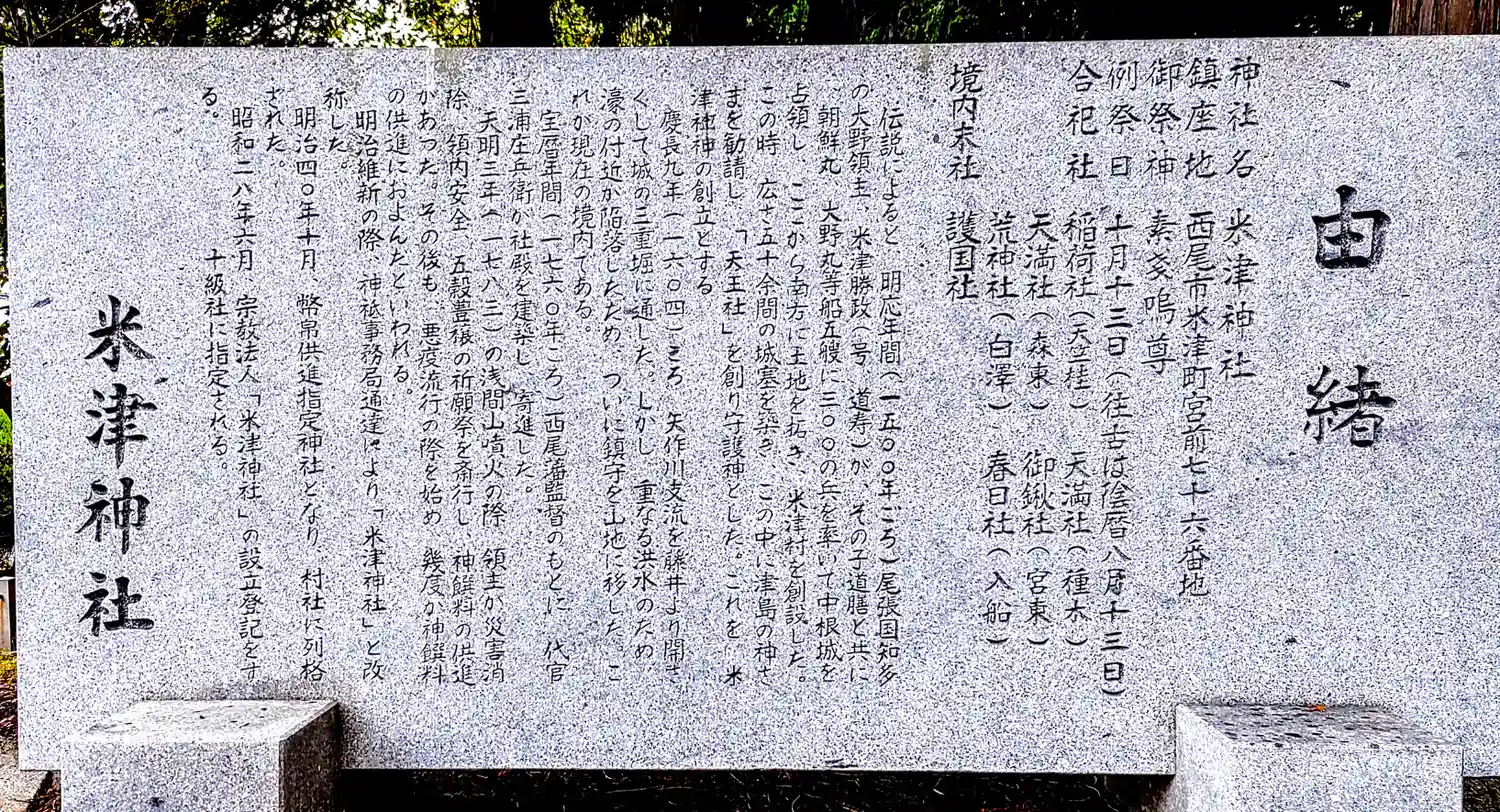 由緒
神社名 米津神社
鎮座地 西尾市米津町宮前七十六番地
御祭神 素戔嗚尊
例祭日 十月十三日(往古は陰暦八月十三日)
合祀社 稲荷社(天笠桂) 天満社(種木)
天満社(森東) 御鍬社(宮東)
荒神社(白澤) 春日社(入船)
境内末社 護国社
伝説によると、明応年間(一五〇〇年ごろ)尾張国知多
の大野領主、米津勝政(号、道寿)が、その子道膳と共に
、朝鮮丸、大野丸等船五艘に三〇〇の兵を率いて中根城を
占領し、ここから南方に土地を拓き、米津村を創設した。
この時、広さ五十余間の城塞を築き、この中に津島の神さ
まを勧請し、「天王社」を創り守護神とした。これを、米
津神神の創立とする
慶長九年(一六〇四)ころ、矢作川支流を藤井より開さ
くして城の三重堀に通した。しかし、重なる洪水のため、
濠の付近が陥落したため、ついに鎮守を山地に移した。こ
れが現在の境内である。
宝暦年間(一七六〇年ころ)西尾藩監督のもとに、代官
三浦庄兵衛が社殿を建築し、寄進した。
天明三年(一七八三)の浅間山噴火の際、領主が災害消
除、領内安全、五穀豊穣の祈願祭を斎行し、神饌料の供進
があった。その後も、悪疫流行の際を始め、幾度か神饌料
の供進におよんだといわれる。
明治維新の際、神祗事務局通達により「米津神社」と改
称した。
明治四〇年十月、幣帛供進指定神社となり、村社に列格
された。
昭和二八年六月、宗教法人「米津神社」の設立登記をす
る。 十級社に指定される。
米津神社